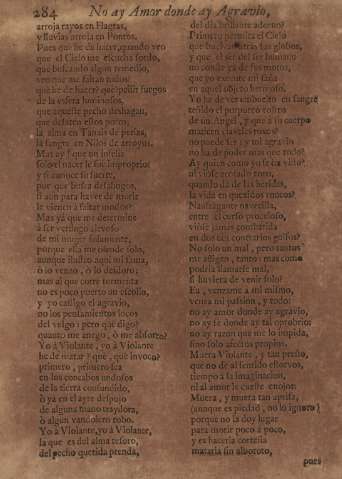 284 No ay Amor donde ay Agravio,
arroja rayos en Flegras,
y lluvias arroja en Pontos.
Pues que he de hacer, quando veo
que el Cielo me escucha sordo,
que buscando algun remedio,
veo que me faltan todos?
què he de hacer?
de la esfera
que aqueste pecho deshagan,
que desaten estos
la alma en Tanais de penas,
la sangre en Nilos de arroyos.
Mas ay! que un infeliz
y si aunque
por que
si aun para haver de morir
le vienen à faltar modos?
Mas yà que me determine
à ser verdugo alevoso
de mi muger solamente,
porque ella me ofende solo,
aunque
ò lo venzo, ò lo desdoro;
mas al que corre tormenta
no es poco puerto un escollo,
y yo castigo el agravio,
no los pensamientos locos
del vulgo: pero què digo?
quanto me anego, ò me absorto?
Yo à Violante, yo à Violante
he de matar? què, què invoco?
primero, primero sea
en los concabos undosos
de la tierra confundido,
ò ya en el ayre despojo
de alguna mano traydora,
ò algun vandolero robo.
Yo à Violante, yo à Violante,
la que es del alma tesoro,
del pecho querida prenda,
del dia brillante adorno?
Primero permita el Cielo
que
y que el ser del ser humano
no conste ya de sus
que yo execute mi saña
en aquel objeto hermoso.
Yo he de ver embuelto en sangre
teñido el purpureo rostro
de un Angel, y que à su cuerpo
maticen claveles roxos?
no puede ser: y mi agravio
no ha de poder mas que todo?
Ay quien como yo se ha visto?
al viose acotado toro,
quando dà de las heridas,
la vida en quexidos roncos?
Naufragante navecilla,
entre el curso proceloso,
viose jamàs combatida
en dos tan contrarios golfos?
No solo un mal, pero tantos
me afligen, tanto: mas como
podria llamarse mal,
si huviera de venir solo?
Ea, venzome à mi mismo,
venza mi passion, y todo:
no ay amor donde ay agravio,
no ay fe donde ay tal oprobrio:
no ay razon que me lo impida,
sino solo afectos propios.
Muera Violante, y tan presto,
que no dè al sentido estorvos,
tiempo à la imaginacion,
ni al amor le cueste enojo:
Muera, y muera tan aprisa,
(aunque es piedad, no lo ignoro)
porque no la doy lugar
para morir poco à poco,
y es hacerla cortesia
matarla sin alboroto,
pues